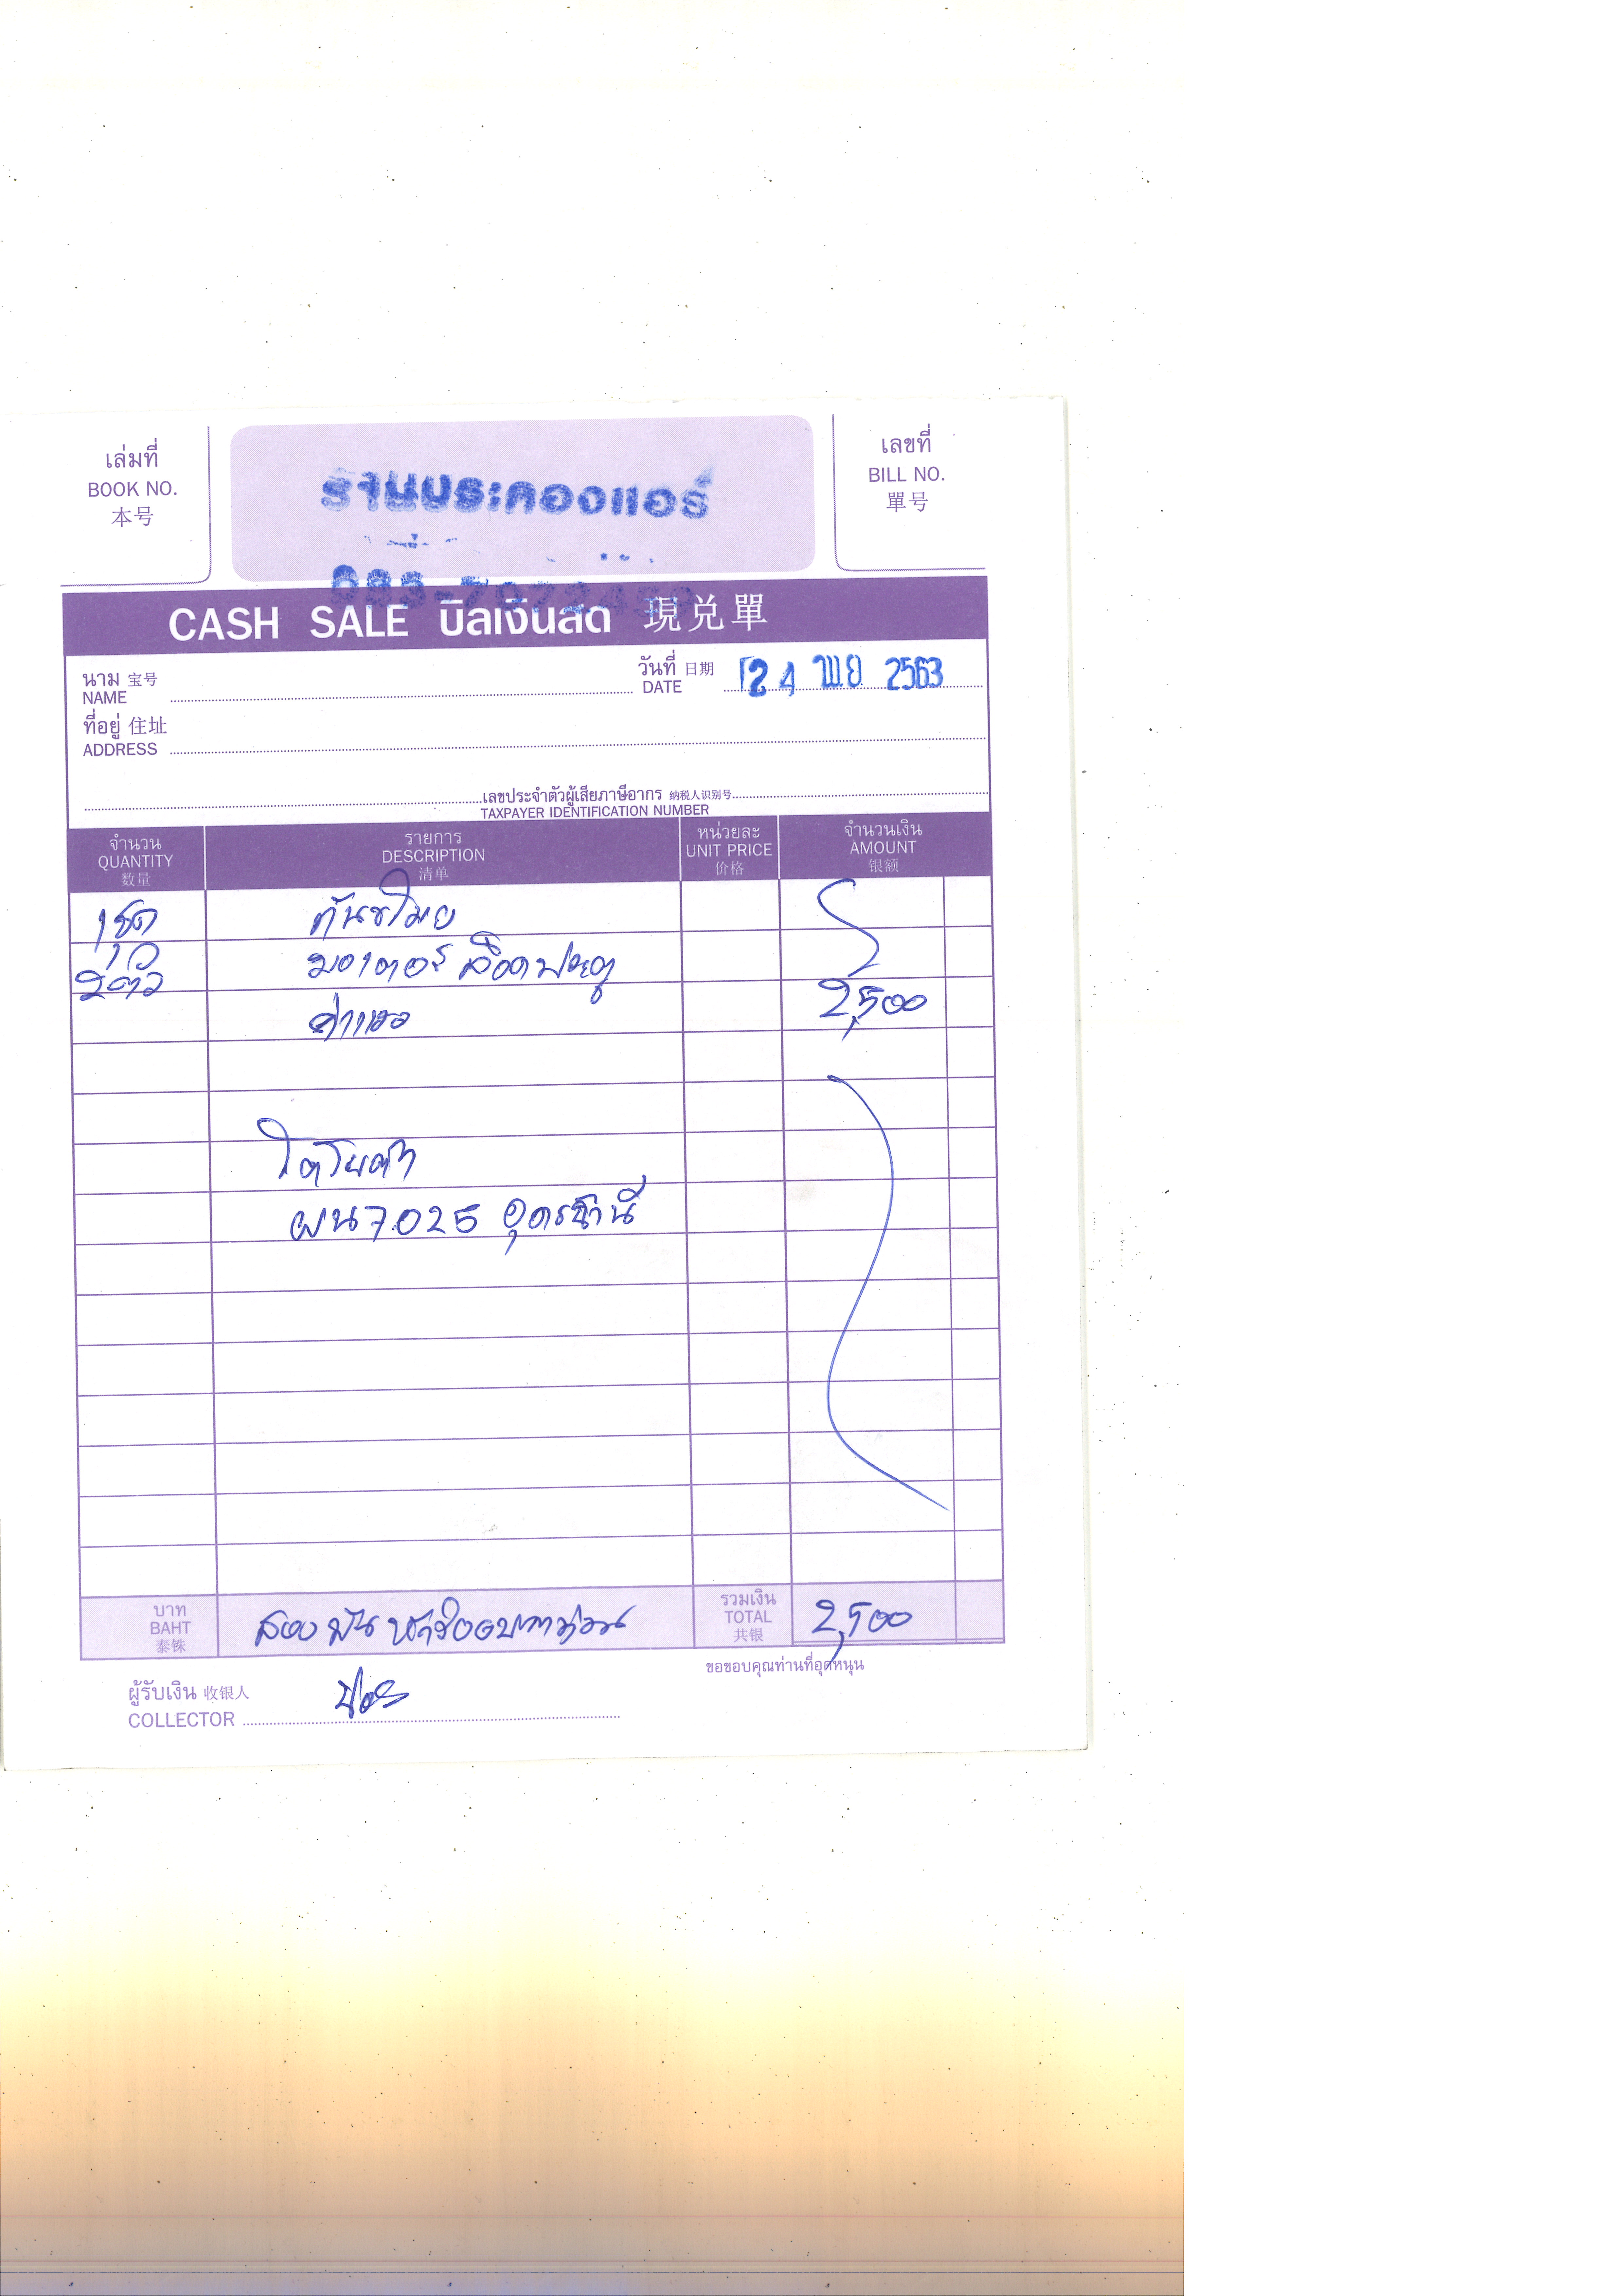 เล่มที่
BOOK NO.
本号
ร้านประคองแอร์
เลขที่
BILL NO.
單号
CASH SALE บิลเงินสด 現兑單
นาม 宝号
NAME
วันที่ 日期
DATE
24 พย 2563
ที่อยู่ 住址
ADDRESS
เลขประจำตัวผู้เสียภาษีอากร 纳税人识别号
TAXPAYER IDENTIFICATION NUMBER
จำนวน
QUANTITY
数量
รายการ
DESCRIPTION
清单
หน่วยละ
UNIT PRICE
价格
จำนวนเงิน
AMOUNT
银额
1 ชุด กันขโมย
2 ตัว มอเตอร์ ล็อคประตู
ค่าแรง 2,500
โตโยต้า
ผน 7025 อุดรธานี
บาท
BAHT
泰铢
สองพันห้าร้อยบาทถ้วน
รวมเงิน
TOTAL
共银
2,500
ขอขอบคุณท่านที่อุดหนุน
ผู้รับเงิน 收银人
COLLECTOR